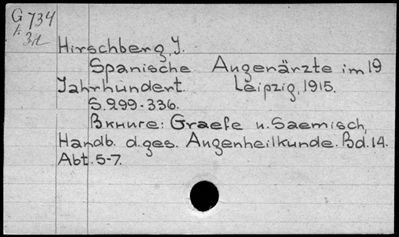 G 734
Hirschberg, J.
Spanische Augenärzte im 19
Jahrhundert. Leipzig, 1915.
S. 299-336.
Вкниге: Graefe u. Saemisch,
Handb. d. ges. Augenheilkunde. Bd. 14.
Abt. 5-7.